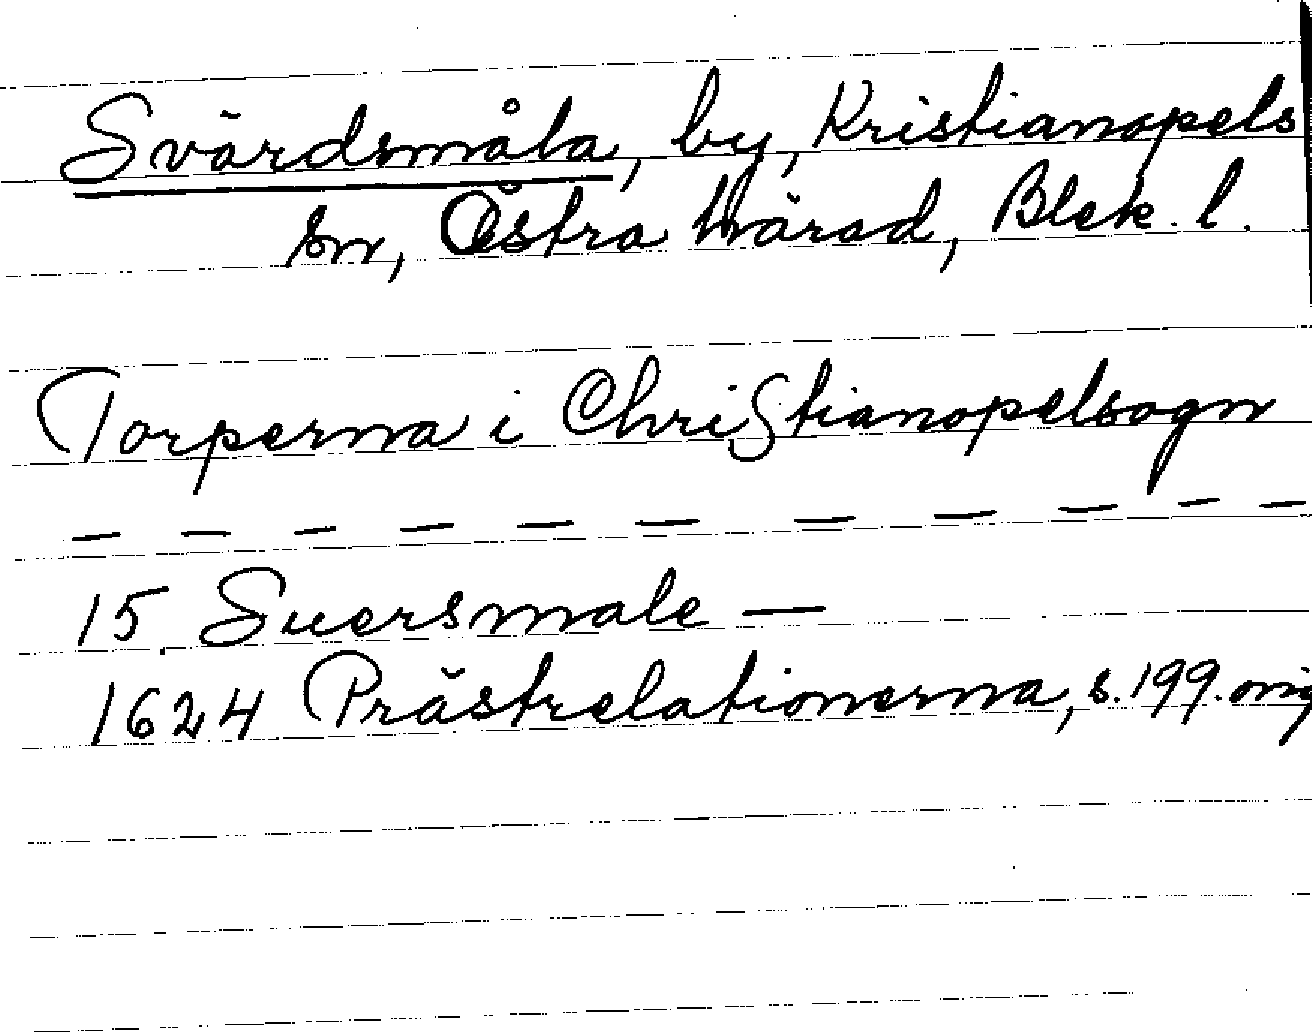 Svärdsmåla, by, Kristianopels
sn, Östra härad, Blek. l.
Torperna i Christianopelsogn
— — — — — — — — — — —
15 Suersmale —
1624 Prästrelationerna, s. 199. orig